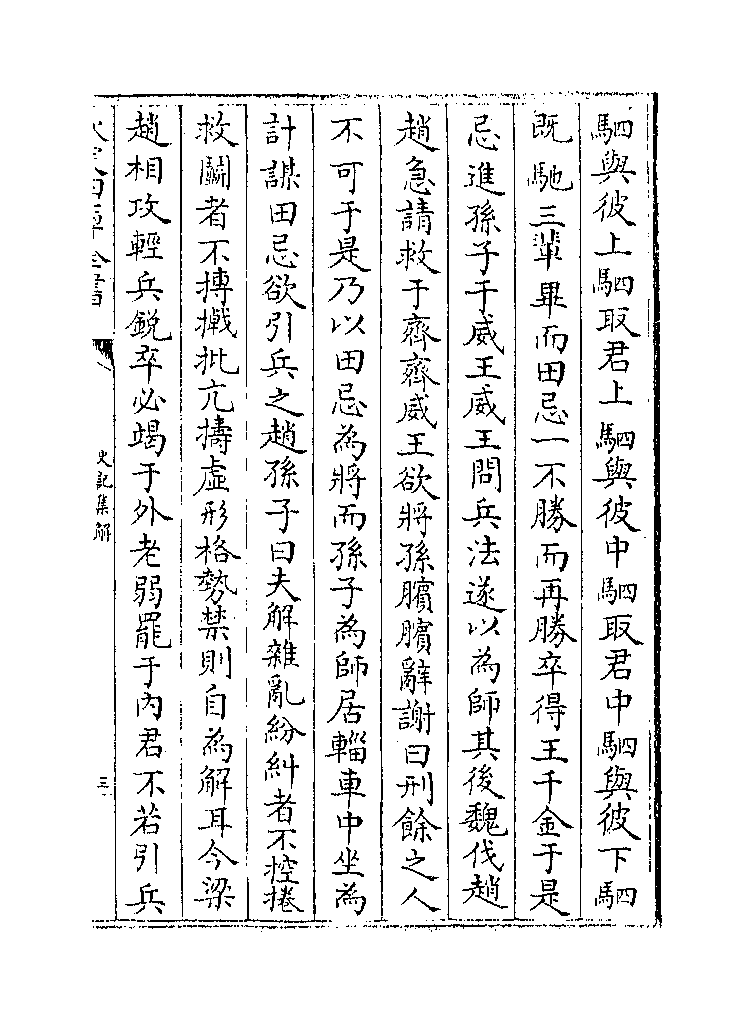 駟與彼上駟取君上駟與彼中駟取君中駟與彼下駟
既馳三輩畢而田忌一不勝而再勝卒得王千金于是
忌進孫子于威王威王問兵法遂以為師其後魏伐趙
趙急請救于齊齊威王欲將孫臏臏辭謝曰刑餘之人
不可于是乃以田忌為將而孫子為師居輜車中坐為
計謀田忌欲引兵之趙孫子曰夫解雜亂紛糾者不控捲
救鬭者不搏撠批亢擣虛形格勢禁則自為解耳今梁
趙相攻輕兵銳卒必竭于外老弱罷于內君不若引兵
史記集解
三